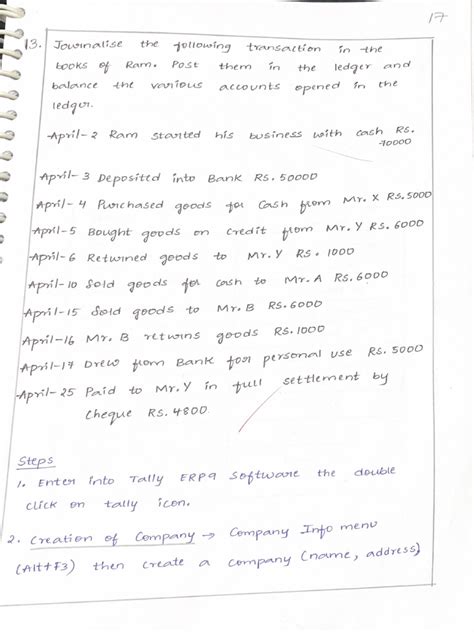 17
13. Journalise the following transaction in the
books of Ram. Post them in the ledger and
balance the various accounts opened in the
ledger.
April-2 Ram started his business with cash RS.
70000
April-3 Deposited into Bank RS. 50000
April-4 Purchased goods for Cash from Mr. X RS. 5000
April-5 Bought goods on credit from Mr. Y RS. 6000
April-6 Returned goods to Mr. Y RS. 1000
April-10 Sold goods for cash to Mr. A RS. 6000
April-15 Sold goods to Mr. B RS. 6000
April-16 Mr. B returns goods RS. 1000
April-17 Drew from Bank for personal use RS. 5000
April-25 Paid to Mr. Y in full settlement by
Cheque RS. 4800
Steps
1. Enter into Tally ERP9 Software the double
click on tally icon.
2. Creation of Company → Company Info menu
(Alt+F3) then create a company (name, address)